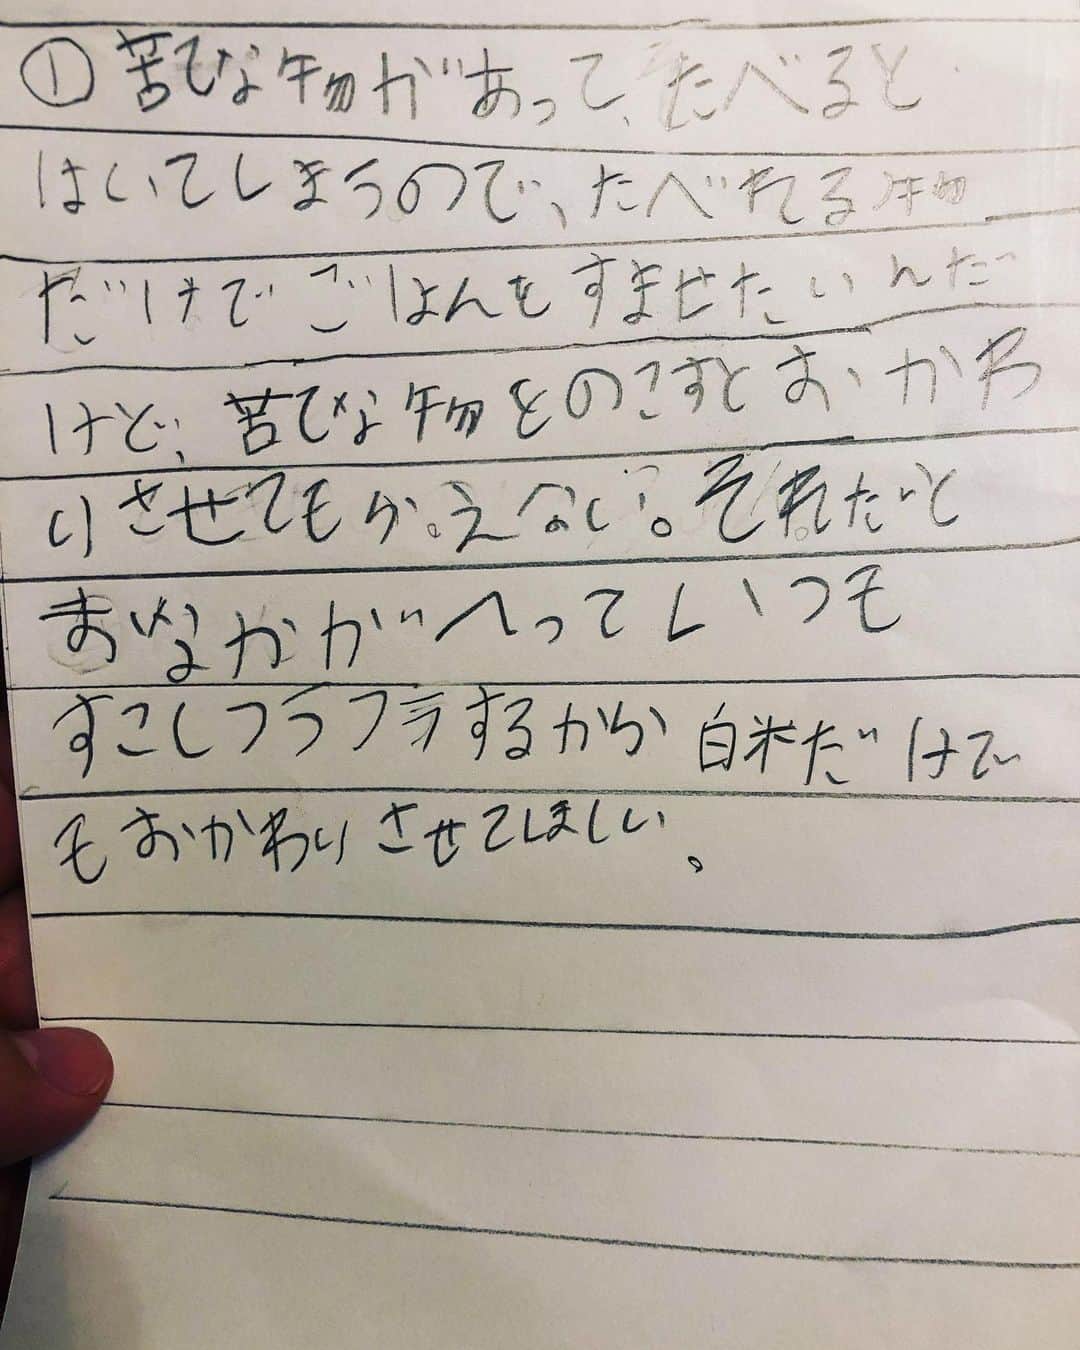 ① 苦てな物があって、たべると
はいてしまうので、たべれる物
だけでごはんをすませたいんだ
けど、苦てな物をのこすとおかわ
りさせてもらえない。それだと
おなかがへっていつも
すこしフラフラするから白米だけで
もおかわりさせてほしい。